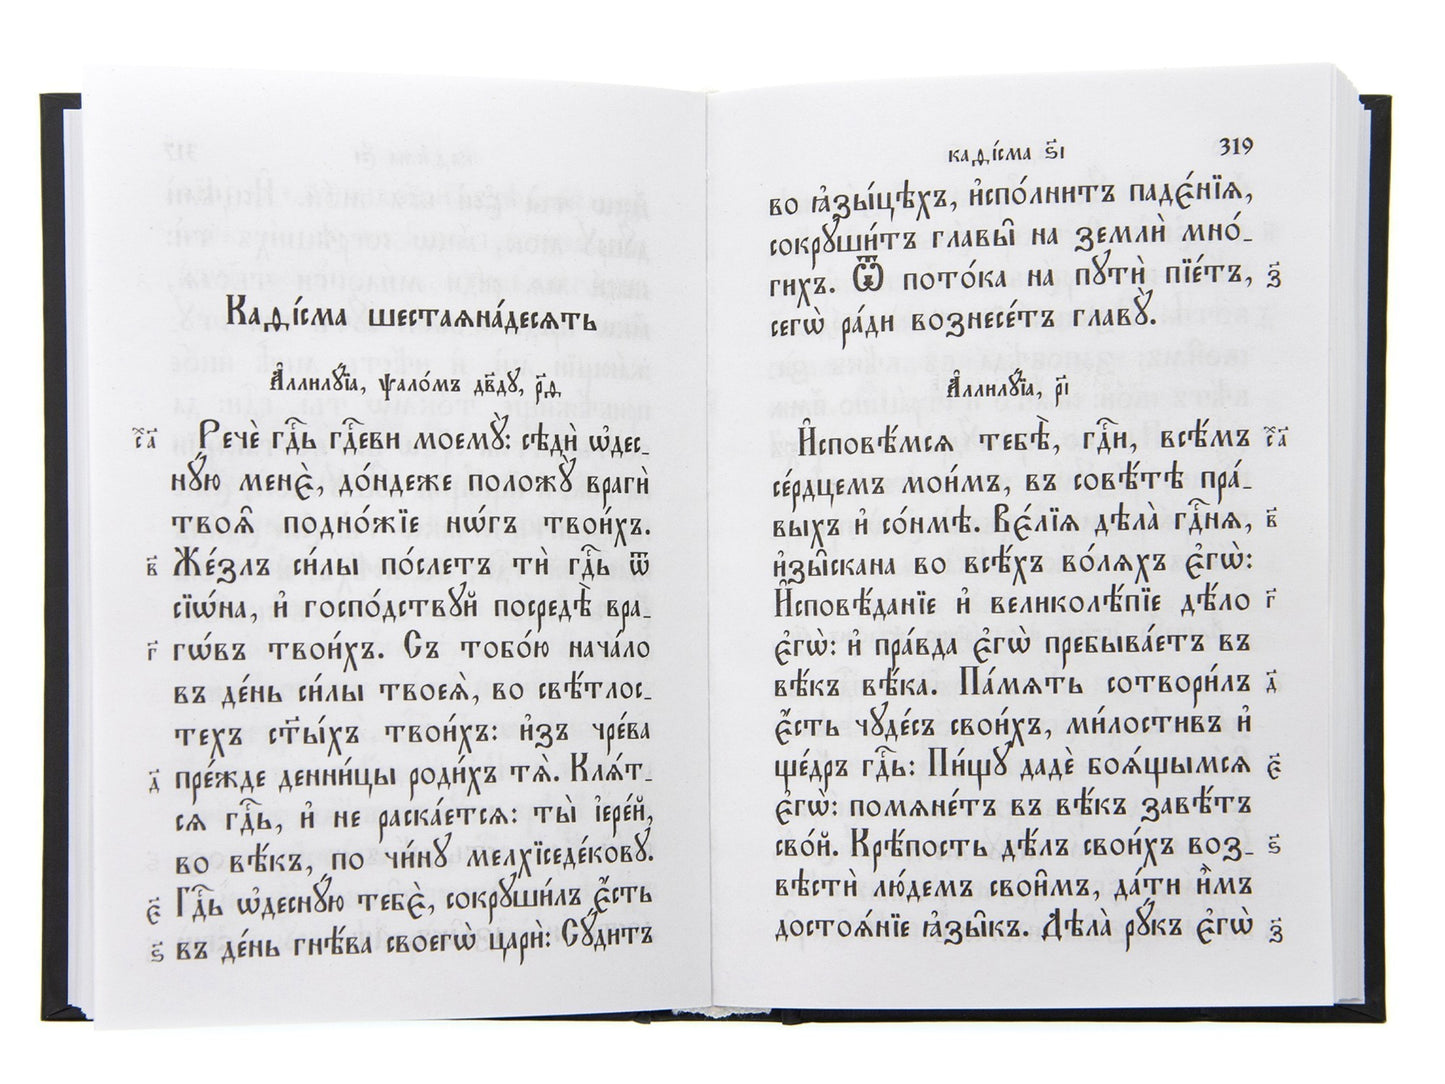 Каѳі́сма шестаяна́десѧть
А҆ллилꙋ́їа, ѱало́мъ дв҃дꙋ, р҃ѳ
х҃с а҃ Речѐ гдⷭ҇ь гдⷭ҇еви моемꙋ̀: сѣдѝ ѡ҆дес_
нꙋ́ю менє̀, до́ндеже положꙋ̀ врагѝ
твоѧ̑ подно́жїе но́гъ твои́хъ.
в҃ Же́злъ си́лы по́слетъ тѝ гдⷭ҇ь ѿ
сїѡ́на, и҆ госпо́дствꙋй посредѣ̀ вра_
г҃ гѡ́въ твои́хъ. Съ тобо́ю нача́ло
въ де́нь си́лы твоеѧ̀, во свѣ́тлос_
техъ ст҃ы́хъ твои́хъ: и҆зъ чре́ва
д҃ пре́жде денни́цы роди́хъ тѧ̀. Клѧ́т_
сѧ гдⷭ҇ь, и҆ не раска́етсѧ: ты̀ і҆ере́й,
во вѣ́къ, по чи́нꙋ мелхїседе́ковꙋ.
є҃ Гдⷭ҇ь ѡ҆деснꙋ́ю тебє̀, сокрꙋши́лъ є҆́сть
ѕ҃ въ де́нь гнѣ́ва своегѡ̀ цари̑: Сꙋ́дитъ
каѳі́сма ѕ҃і 319
во ꙗ҆зы́цѣхъ, и҆спо́лнитъ падє́нїѧ,
сокрꙋши́тъ главы̑ на землѝ мно́_
гихъ. Ѿ пото́ка на пꙋтѝ пїе́тъ, з҃
сегѡ̀ ра́ди вознесе́тъ главꙋ̀.
А҆ллилꙋ́їа, р҃і
И҆сповѣ́мсѧ тебѣ̀, гдⷭ҇и, всѣ́мъ х҃с а҃
се́рдцемъ мои́мъ, въ совѣ́тѣ пра́_
выхъ и҆ со́нмѣ. Вє́лїѧ дѣла̀ гдⷭ҇нѧ, в҃
и҆зы̑скана во всѣ́хъ во́лѧхъ є҆гѡ̀:
И҆сповѣ́данїе и҆ великолѣ́пїе дѣ́ло г҃
є҆гѡ̀: и҆ пра́вда є҆гѡ̀ пребыва́етъ въ
вѣ́къ вѣ́ка. Па́мѧть сотвори́лъ д҃
є҆́сть чꙋде́съ свои́хъ, ми́лостивъ и҆
ще́дръ гдⷭ҇ь: Пи́щꙋ дадѐ боѧ́щымсѧ є҃
є҆гѡ̀: помѧне́тъ въ вѣ́къ завѣ́тъ
сво́й. Крѣ́пость дѣ́лъ свои́хъ воз_ ѕ҃
вѣстѝ лю́демъ свои̑мъ, да́ти и҆̀мъ
достоѧ́нїе ꙗ҆зы̑къ. Дѣла̀ рꙋ́къ є҆гѡ̀ з҃